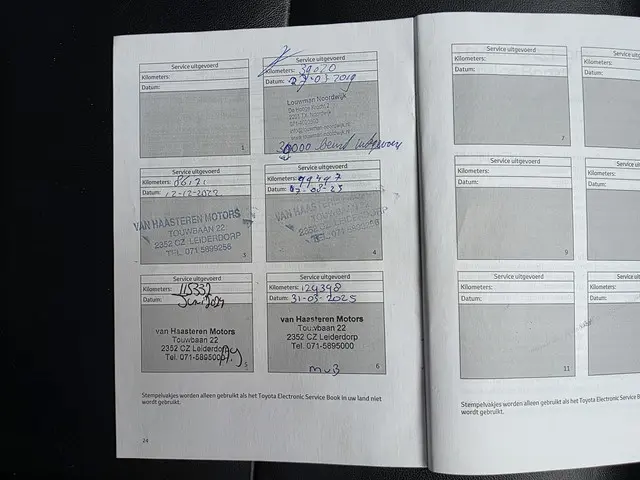 Service uitgevoerd
Kilometers:
Datum:
1
Service uitgevoerd
Kilometers: 30020
Datum: 27-03-2019
Louwman Noordwijk
30000 beurt uitgevoerd
Service uitgevoerd
Kilometers:
Datum: 12-12-2022
VAN HAASTEREN MOTORS
TOUWBAAN 22
2352 CZ LEIDERDORP
TEL. 071-5899256
3
Service uitgevoerd
Kilometers: 99497
Datum: 07-08-23
VAN HAASTEREN MOTORS
TOUWBAAN 22
2352 CZ LEIDERDORP
TEL. 071-5899256
4
Service uitgevoerd
Kilometers: 115332
Datum: Juni 2024
van Haasteren Motors
Touwbaan 22
2352 CZ Leiderdorp
Tel. 071-5895000
5
Service uitgevoerd
Kilometers: 124398
Datum: 31-03-2025
van Haasteren Motors
Touwbaan 22
2352 CZ Leiderdorp
Tel. 071-5895000
MvB
6
Stempelvakjes worden alleen gebruikt als het Toyota Electronic Service Book in uw land niet
wordt gebruikt.
24
Service uitgevoerd
Kilometers:
Datum:
7
Service uitgevoerd
Kilometers:
Datum:
9
Service uitgevoerd
Kilometers:
Datum:
11
Stempelvakjes worden alleen gebruikt als het Toyota Electronic Service B
wordt gebruikt.